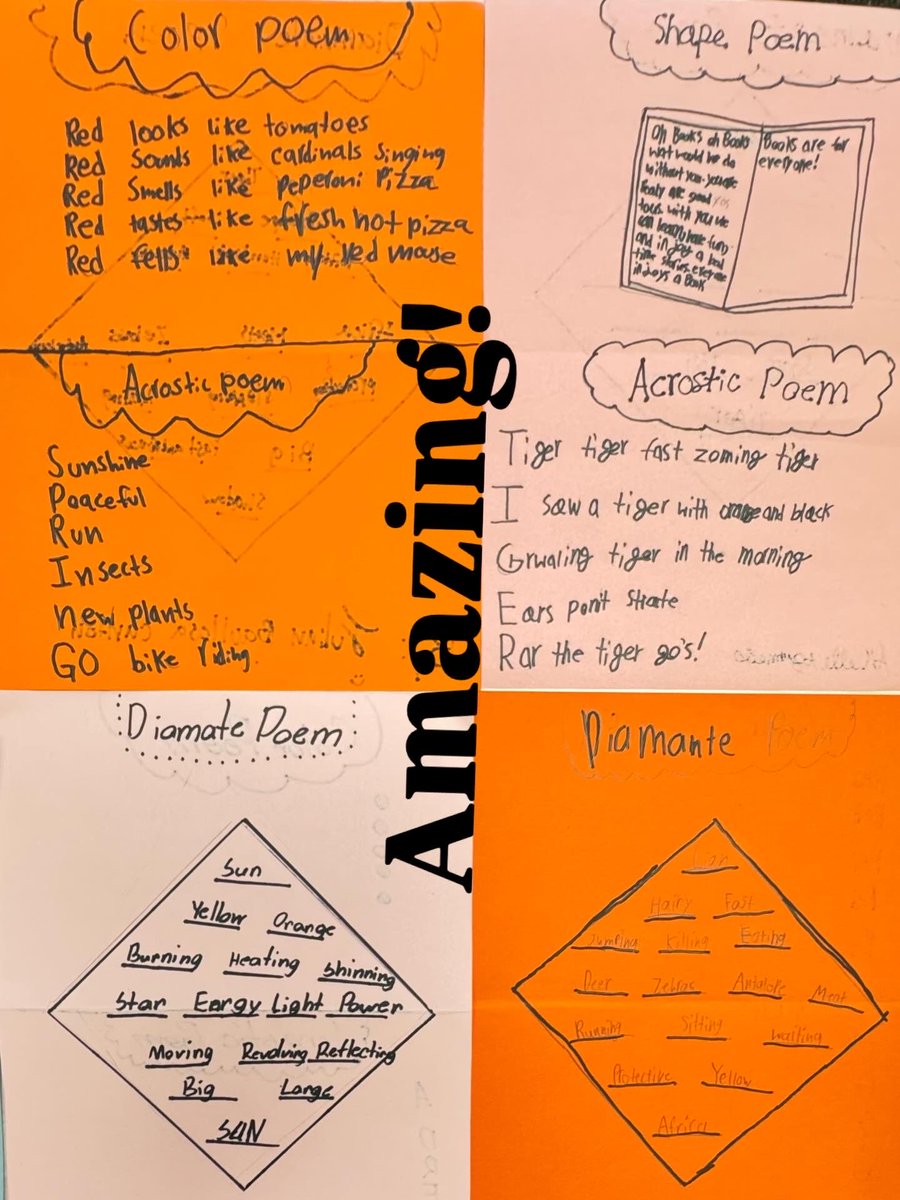 Color poem
Red looks like tomatoes
Red Sounds like cardinals singing
Red Smells like peperoni Pizza
Red tastes like fresh hot pizza
Red fells like my red mouse
Acrostic poem
Sunshine
Peaceful
Run
Insects
new plants
GO bike riding
Shape Poem
Oh Books oh Books
wat would we do
without you
are good
tours with you we
can
and in joys a bed
time stories everyone
in joys a Book
Books are for
everyone!
Acrostic Poem
Tiger tiger fast zoming tiger
I saw a tiger with orange and black
Grwaling tiger in the morning
Ears
Rar the tiger go's!
Amazing!
Diamate Poem
Sun
Yellow Orange
Burning Heating Shinning
Star Eargy Light Power
Moving Revolving Reflecting
Big Large
SUN
Diamante Poem
Lion
Hairy Fast
Jumping Killing Eating
Deer Zebras Antalope Meat
Running Sitting waiting
Protective Yellow
Africa